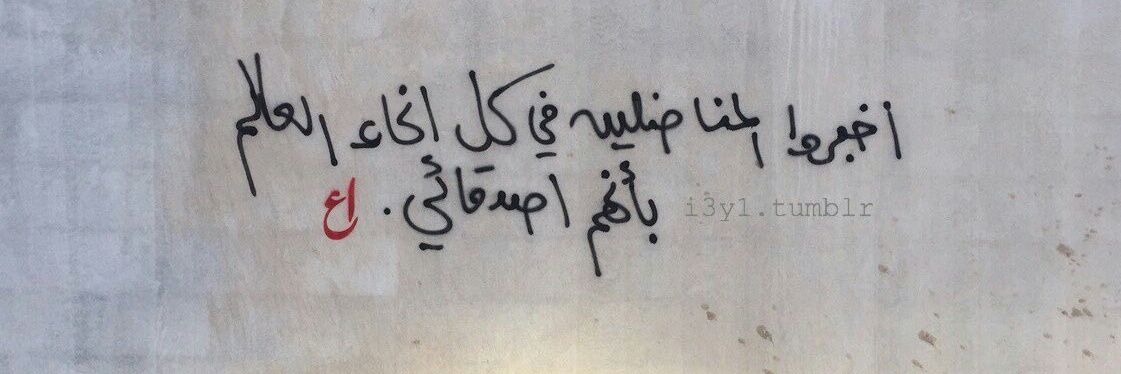 اخبروا المناضلين في كل انحاء العالم
بأنهم اصدقائي .
اع
i3y1.tumblr